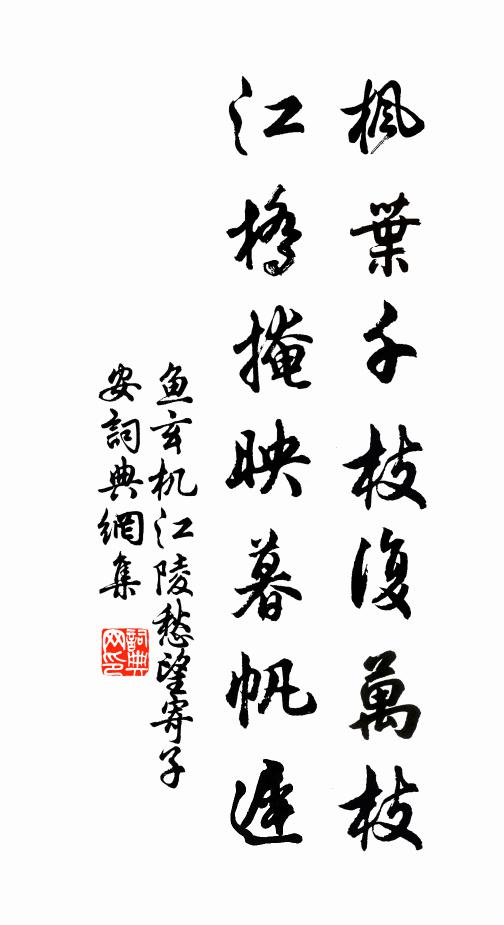 楓葉千枝復萬枝
江橋掩映暮帆遲
魚玄机江陵愁望寄子
安詞典網集
詞典
网印